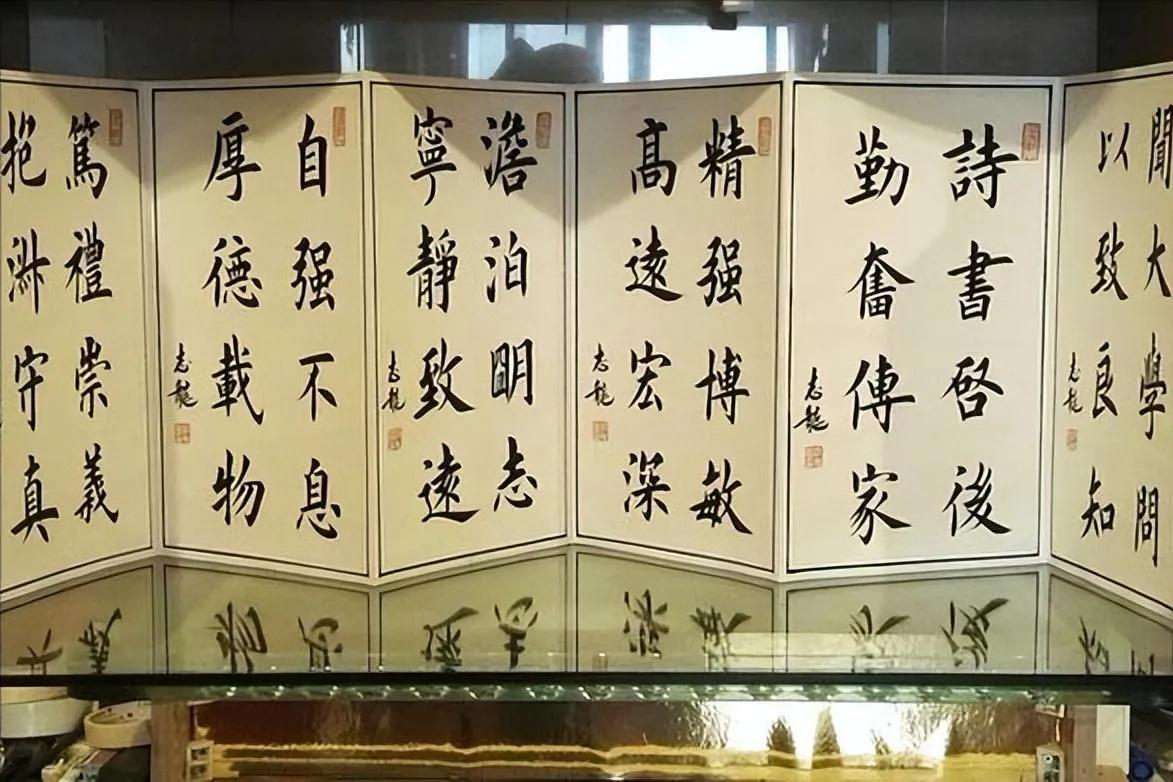 聞大學問
以致良知
志龍
詩書啓後
勤奮傳家
志龍
精强博敏
髙遠宏深
志龍
澹泊明志
寧靜致遠
志龍
自强不息
厚德載物
志龍
篤禮崇義
抱守真